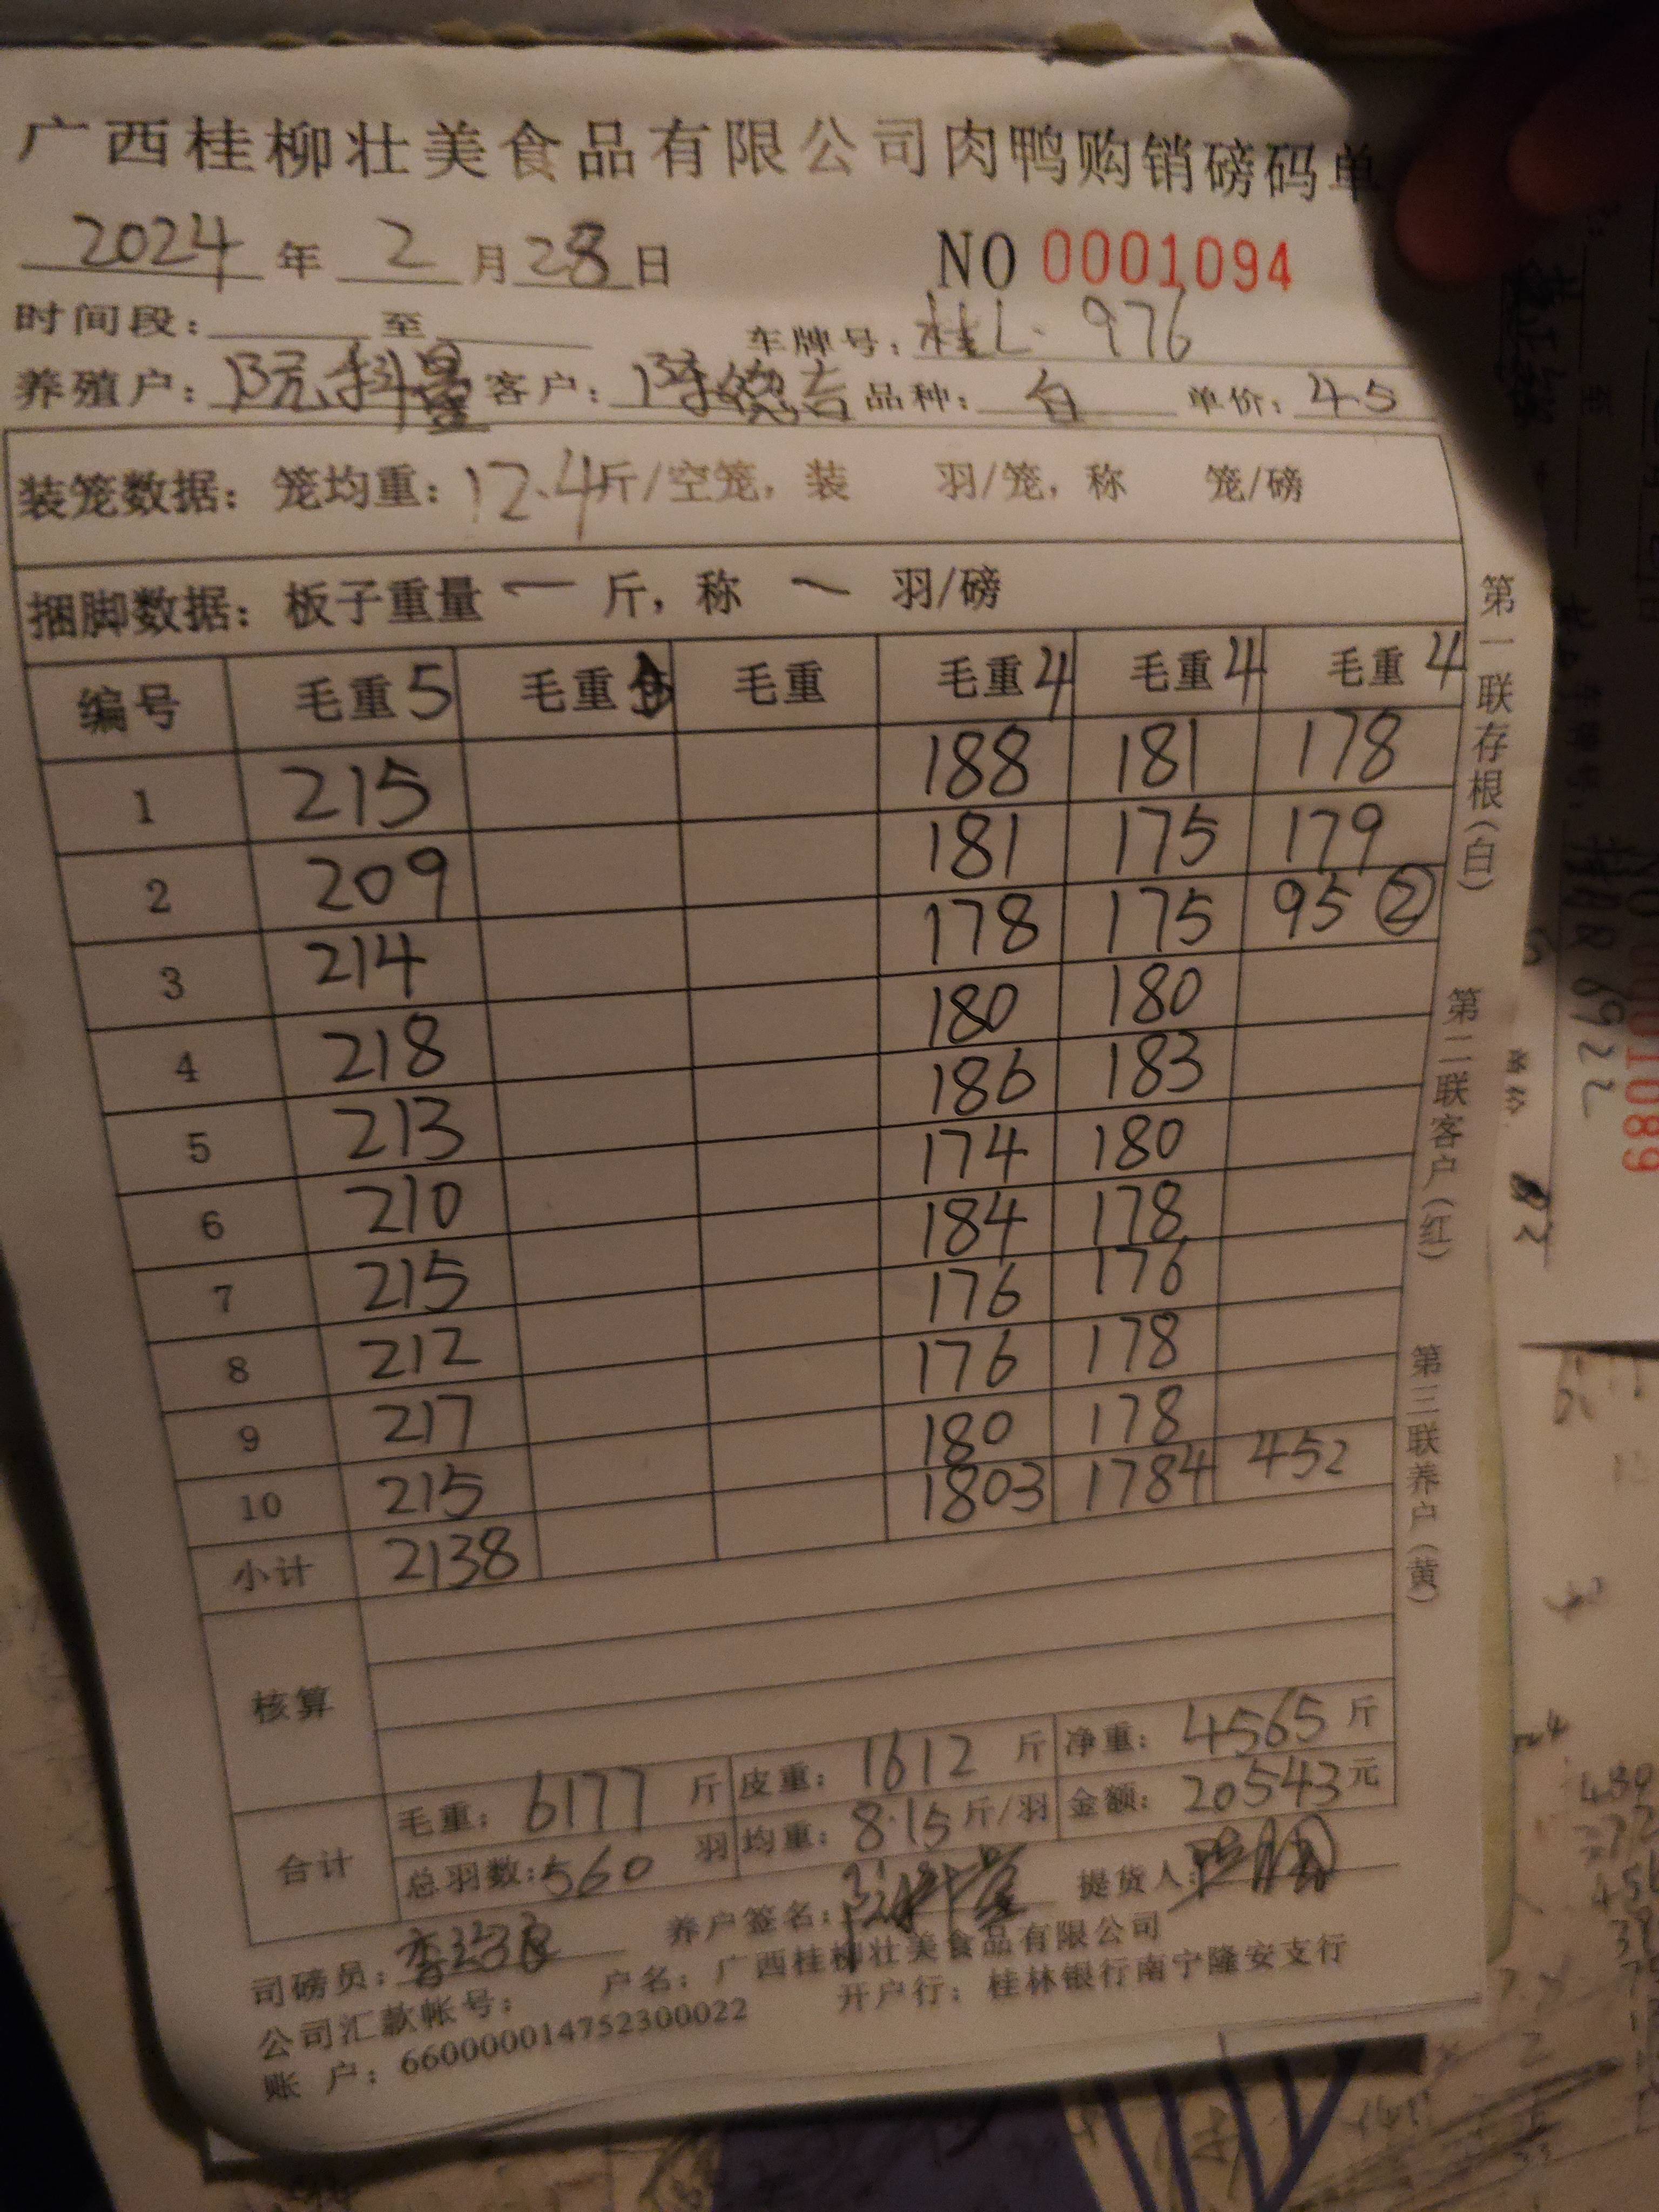 广西桂柳壮美食品有限公司肉鸭购销磅码单
2024 年 2 月 28 日 NO 0001094
时间段: 至 车牌号: 桂L· 976
养殖户: 阮科量 客户: 陈德吉 品种: 白 单价: 4.5
装笼数据: 笼均重: 12.4 斤/空笼, 装 羽/笼, 称 笼/磅
捆脚数据: 板子重量 一 斤, 称 一 羽/磅
编号 毛重5 毛重 毛重 毛重4 毛重4 毛重4
1 215 188 181 178
2 209 181 175 179
3 214 178 175 95 ②
4 218 180 180
5 213 186 183
6 210 174 180
7 215 184 178
8 212 176 176
9 217 176 178
10 215 180 178
小计 2138 1803 1784 452
核算
合计 毛重: 6177 斤 皮重: 1612 斤 净重: 4565 斤
总羽数: 560 羽 均重: 8.15 斤/羽 金额: 20543 元
司磅员: 养户签名: 提货人:
公司汇款帐号: 户名: 广西桂柳壮美食品有限公司
账 户: 660000014752300022 开户行: 桂林银行南宁隆安支行
第一联存根(白)
第二联客户(红)
第三联养户(黄)
0001089
R 6922